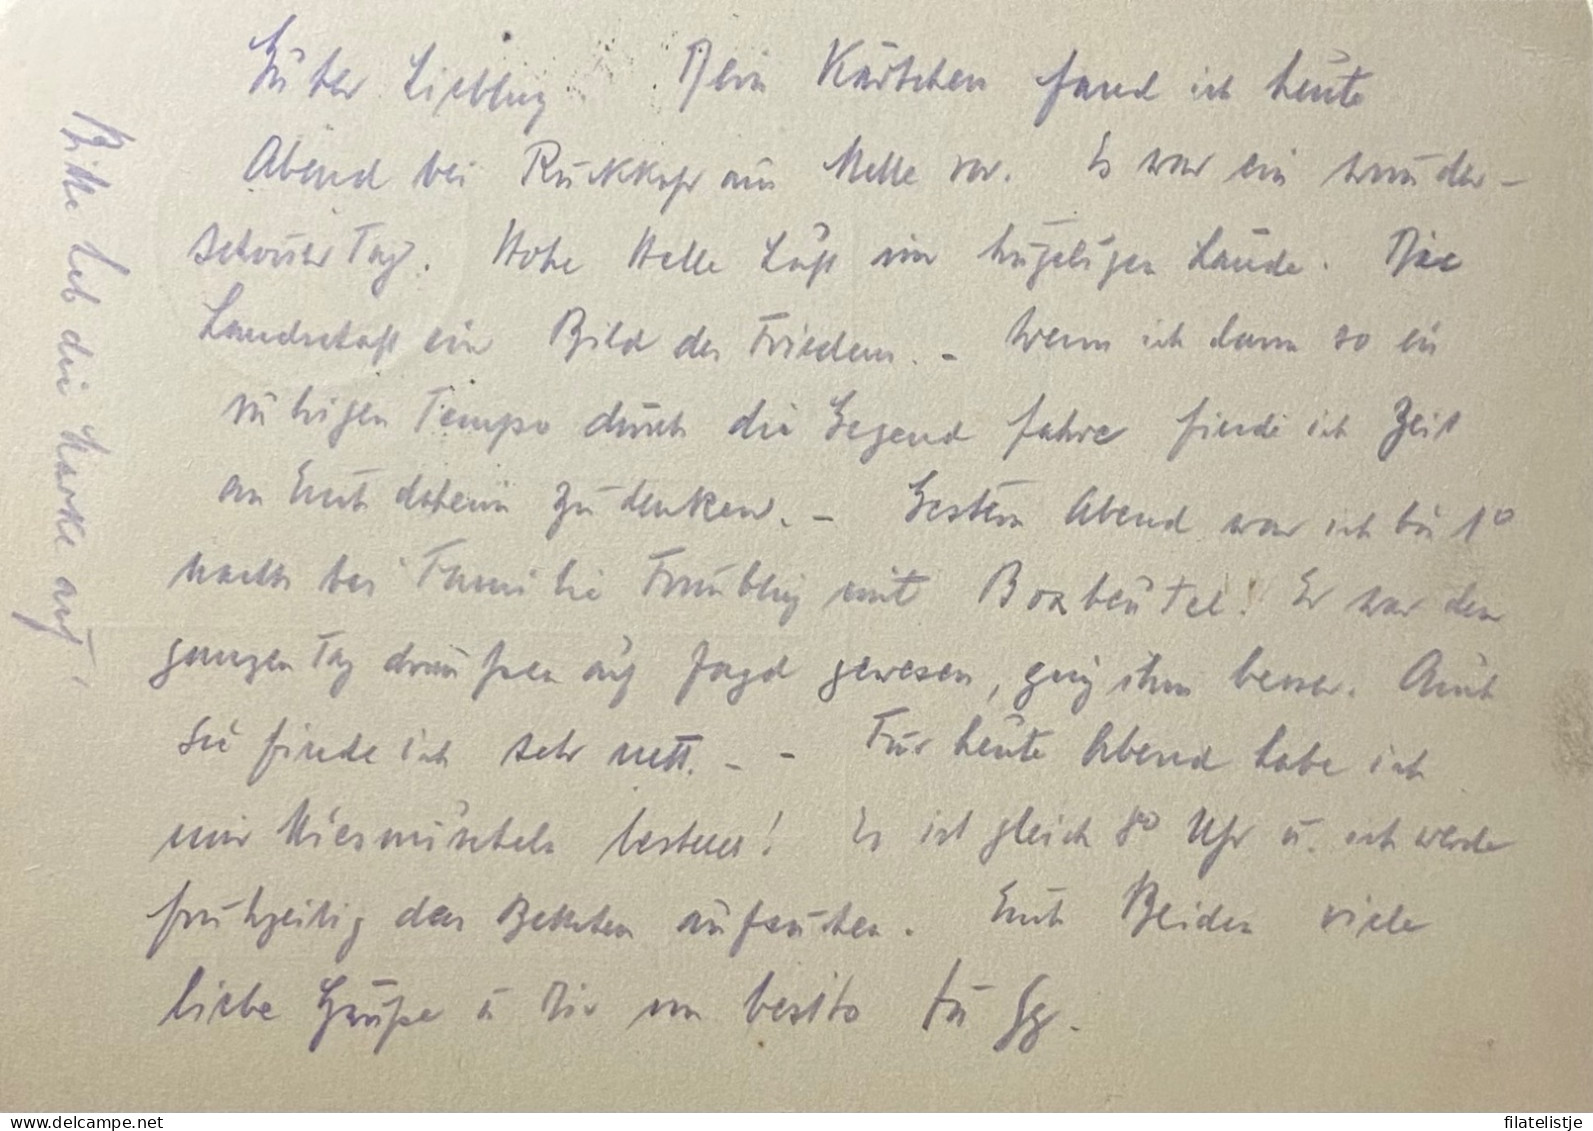 Guter Liebling Dein Kärtchen fand ich heute
Abend bei Rückkehr aus Melle vor. Es war ein wunder-
schöner Tag. Hohe Helle Luft im hügeligen Lande. Die
Landschaft ein Bild des Friedens. - Wenn ich dann so ein
ruhigen Tempo durch die Gegend fahre finde ich Zeit
an Euch daheim zu denken. - Gestern Abend war ich bis 1°
nachts bei Familie mit Boxbeutel! Er war den
ganzen Tag draußen auf Jagd gewesen, ging ihm besser. Auch
Sie finde ich sehr nett. - - Für heute Abend habe ich
mir Miesmuscheln bestellt! Es ist gleich 8° Uhr u. ich werde
frühzeitig das Bettchen aufsuchen. Euch Beiden viele
liebe Grüße u Dir un besito
Bitte heb die Marke auf!
filatelistje
www.delcampe.net